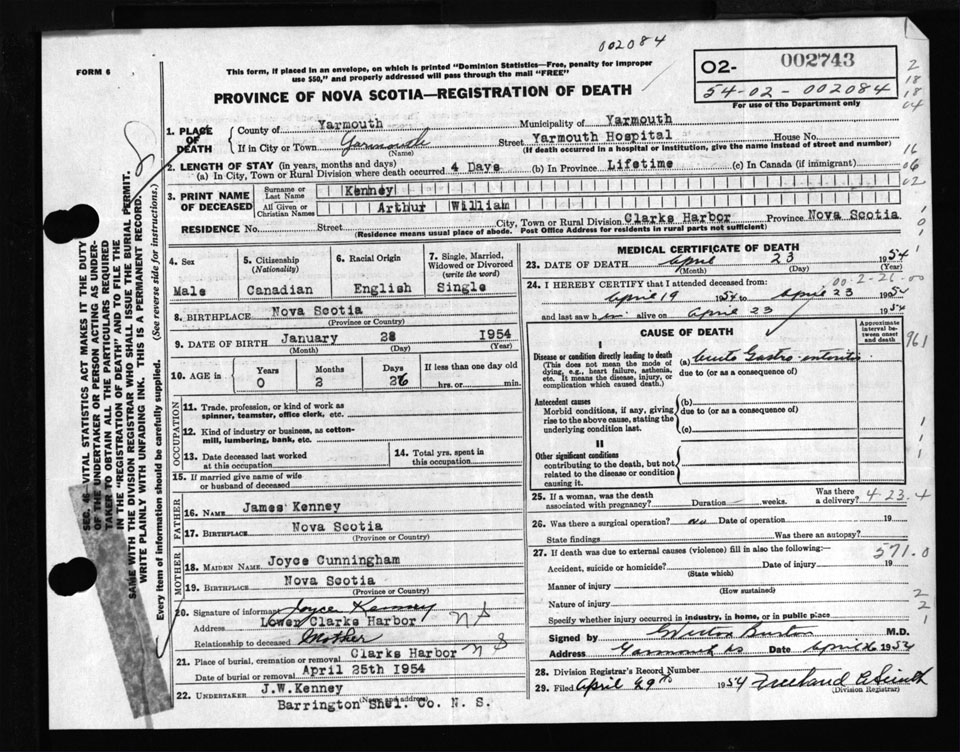 002084
FORM 6
This form, if placed in an envelope, on which is printed "Dominion Statistics—Free, penalty for improper
use $50," and properly addressed will pass through the mail "FREE"
02- 002743
54-02-002084
For use of the Department only
PROVINCE OF NOVA SCOTIA—REGISTRATION OF DEATH
1. PLACE OF DEATH
County of Yarmouth Municipality of Yarmouth
If in City or Town Yarmouth Street Yarmouth Hospital House No.
(Name) (If death occurred in a hospital or institution, give the name instead of street and number)
2. LENGTH OF STAY (in years, months and days)
(a) In City, Town or Rural Division where death occurred 4 Days (b) In Province Lifetime (c) In Canada (if immigrant)
3. PRINT NAME OF DECEASED
Surname or Last Name Kenney
All Given or Christian Names Arthur William
RESIDENCE No. Street City, Town or Rural Division Clarks Harbor Province Nova Scotia
(Residence means usual place of abode. Post Office Address for residents in rural parts not sufficient)
4. Sex
Male
5. Citizenship
(Nationality)
Canadian
6. Racial Origin
English
7. Single, Married,
Widowed or Divorced
(write the word)
Single
8. BIRTHPLACE Nova Scotia
(Province or Country)
9. DATE OF BIRTH January 28 1954
(Month) (Day) (Year)
10. AGE in Years Months Days If less than one day old
0 2 26 hrs. or min.
OCCUPATION
11. Trade, profession, or kind of work as
spinner, teamster, office clerk, etc.
12. Kind of industry or business, as cotton-
mill, lumbering, bank, etc.
13. Date deceased last worked
at this occupation
14. Total yrs. spent in
this occupation
15. If married give name of wife
or husband of deceased
FATHER
16. NAME James Kenney
17. BIRTHPLACE Nova Scotia
(Province or Country)
MOTHER
18. MAIDEN NAME Joyce Cunningham
19. BIRTHPLACE Nova Scotia
(Province or Country)
20. Signature of informant Joyce Kenney
Address Lower Clarks Harbor NS
Relationship to deceased Mother
21. Place of burial, cremation or removal Clarks Harbor NS
Date of burial or removal April 25th 1954
22. UNDERTAKER J.W.Kenney
(Name and address)
Barrington Shel. Co. N. S.
MEDICAL CERTIFICATE OF DEATH
23. DATE OF DEATH April 23 1954
(Month) (Day) (Year)
24. I HEREBY CERTIFY that I attended deceased from:
00-2-26-00
April 19 1954 to April 23 1954
and last saw him alive on April 23 1954
CAUSE OF DEATH
Approximate interval between onset and death
I
Disease or condition directly leading to death
(This does not mean the mode of
dying, e.g., heart failure, asthenia,
etc. It means the disease, injury, or
complication which caused death.)
(a) Gastro-enteritis
due to (or as a consequence of)
Antecedent causes
Morbid conditions, if any, giving
rise to the above cause, stating the
underlying condition last.
(b)
due to (or as a consequence of)
(c)
II
Other significant conditions
contributing to the death, but not
related to the disease or condition
causing it.
25. If a woman, was the death
associated with pregnancy? Duration weeks. Was there
a delivery? 4-23-4
26. Was there a surgical operation? no Date of operation 19
State findings Was there an autopsy?
27. If death was due to external causes (violence) fill in also the following: 571.0
Accident, suicide or homicide? Date of injury 19
(State which)
Manner of injury
(How sustained)
Nature of injury
Specify whether injury occurred in industry, in home, or in public place
Signed by M.D.
Address Yarmouth NS Date April 26 1954
28. Division Registrar's Record Number
29. Filed April 29th 1954
(Division Registrar)
SEC. 46—VITAL STATISTICS ACT MAKES IT THE DUTY
OF THE UNDERTAKER OR PERSON ACTING AS UNDER-
TAKER TO OBTAIN ALL THE PARTICULARS REQUIRED
IN THE "REGISTRATION OF DEATH" AND TO FILE THE
SAME WITH THE DIVISION REGISTRAR WHO SHALL ISSUE THE BURIAL PERMIT.
WRITE PLAINLY WITH UNFADING INK. THIS IS A PERMANENT RECORD.
Every item of information should be carefully supplied. (See reverse side for instructions.)
2
18
18
04
16
06
02
1
0
1
961
1
1
1
2
2
1